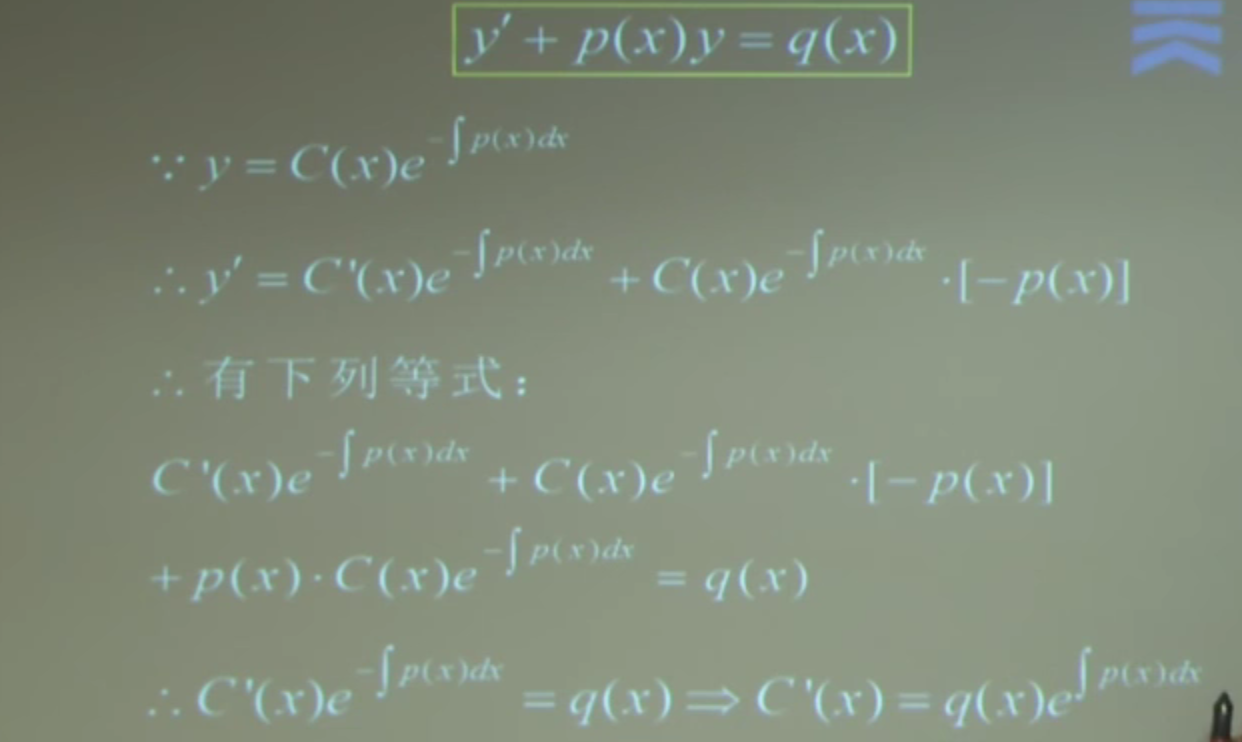 y′ + p(x)y = q(x)
∵ y = C(x)e^{-∫p(x)dx}
∴ y′ = C'(x)e^{-∫p(x)dx} + C(x)e^{-∫p(x)dx} ·[−p(x)]
∴ 有下列等式：
C'(x)e^{-∫p(x)dx} + C(x)e^{-∫p(x)dx} ·[−p(x)]
+ p(x)·C(x)e^{-∫p(x)dx} = q(x)
∴ C'(x)e^{-∫p(x)dx} = q(x) ⇒ C'(x) = q(x)e^{∫p(x)dx}